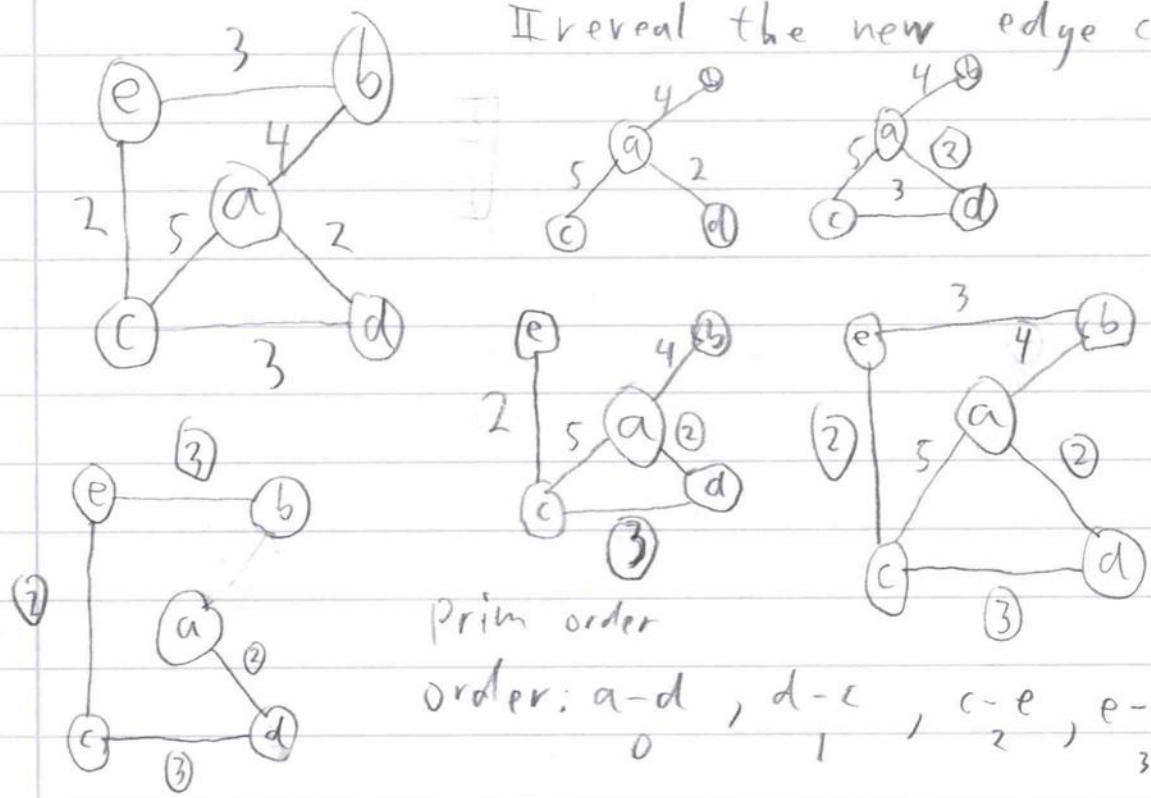 II reveal the new edge c
3
e b
4
a
2 5 2
c d
3
4 b
a
5 2
c d
4 b
a
5 2
3
c d
e b
4
2 5 a 2
c d
3
3
e b
4
2 a
5 2
c d
3
3
e b
a
2
c d
3
prim order
order: a-d , d-c , c-e , e-
0 1 2 3